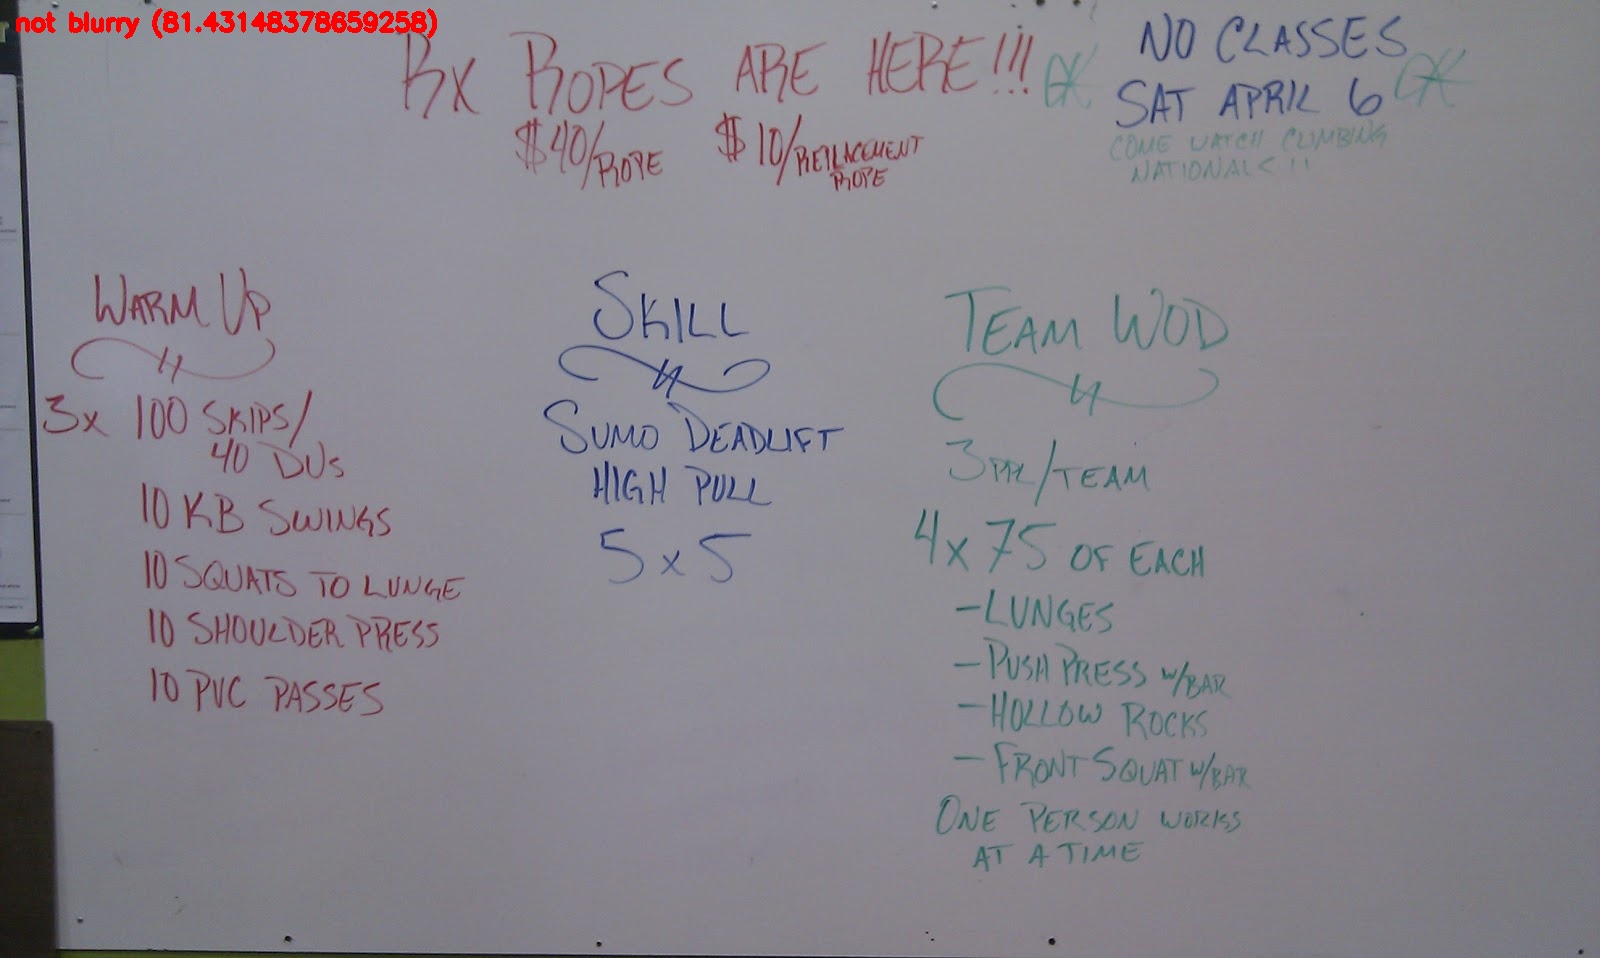 not blurry (81.43148378659258)
Rx ROPES ARE HERE!!!
$40/ROPE $10/REPLACEMENT
ROPE
NO CLASSES
SAT APRIL 6
COME WATCH CLIMBING
NATIONALS !!
WARM UP
3x 100 SKIPS/
40 DUs
10 KB SWINGS
10 SQUATS TO LUNGE
10 SHOULDER PRESS
10 PVC PASSES
SKILL
SUMO DEADLIFT
HIGH PULL
5 x 5
TEAM WOD
3 PPL/TEAM
4 x 75 OF EACH
- LUNGES
- PUSH PRESS w/BAR
- HOLLOW ROCKS
- FRONT SQUAT w/BAR
ONE PERSON WORKS
AT A TIME